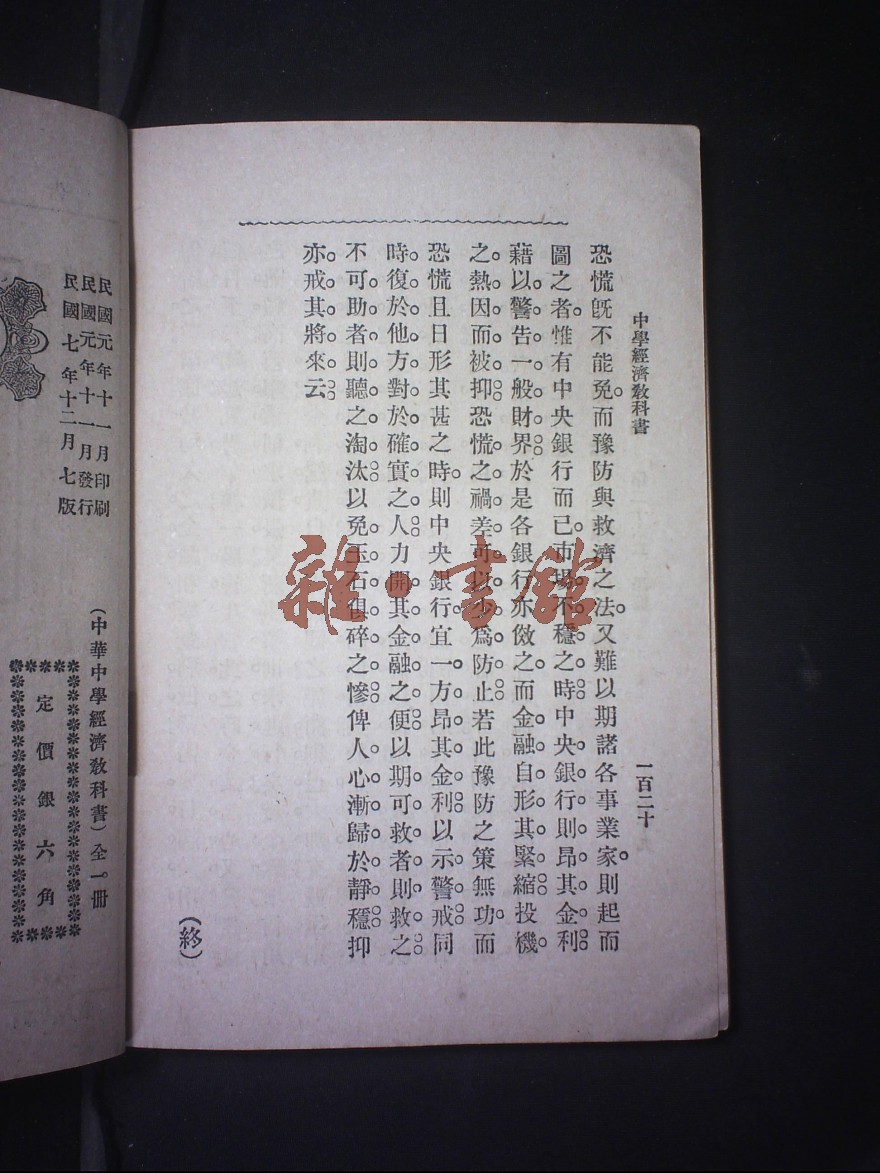 中學經濟敎科書
一百二十
恐慌旣不能免。而豫防與救濟之法。又難以期諸各事業家。則起而
圖之者。惟有中央銀行而已。市場不穩之時。中央銀行則昂其金利
藉以警告一般財界。於是各銀行亦傚之。而金融自形其緊縮。投機
之熱。因而被抑。恐慌之禍。差可以少爲防止。若此豫防之策無功。而
恐慌且日形其甚之時。則中央銀行。宜一方昂其金利。以示警戒。同
時。復於他方對於確實之人。力開其金融之便。以期可救者則救之。
不可助者則聽之淘汰。以免玉石俱碎之慘。俾人心漸歸於靜穩。抑
亦戒其將來云。
(終)
民國元年十一月印刷
民國元年十一月發行
民國七年十二月七版
(中華中學經濟敎科書)全一冊
定價銀六角
雜·書館